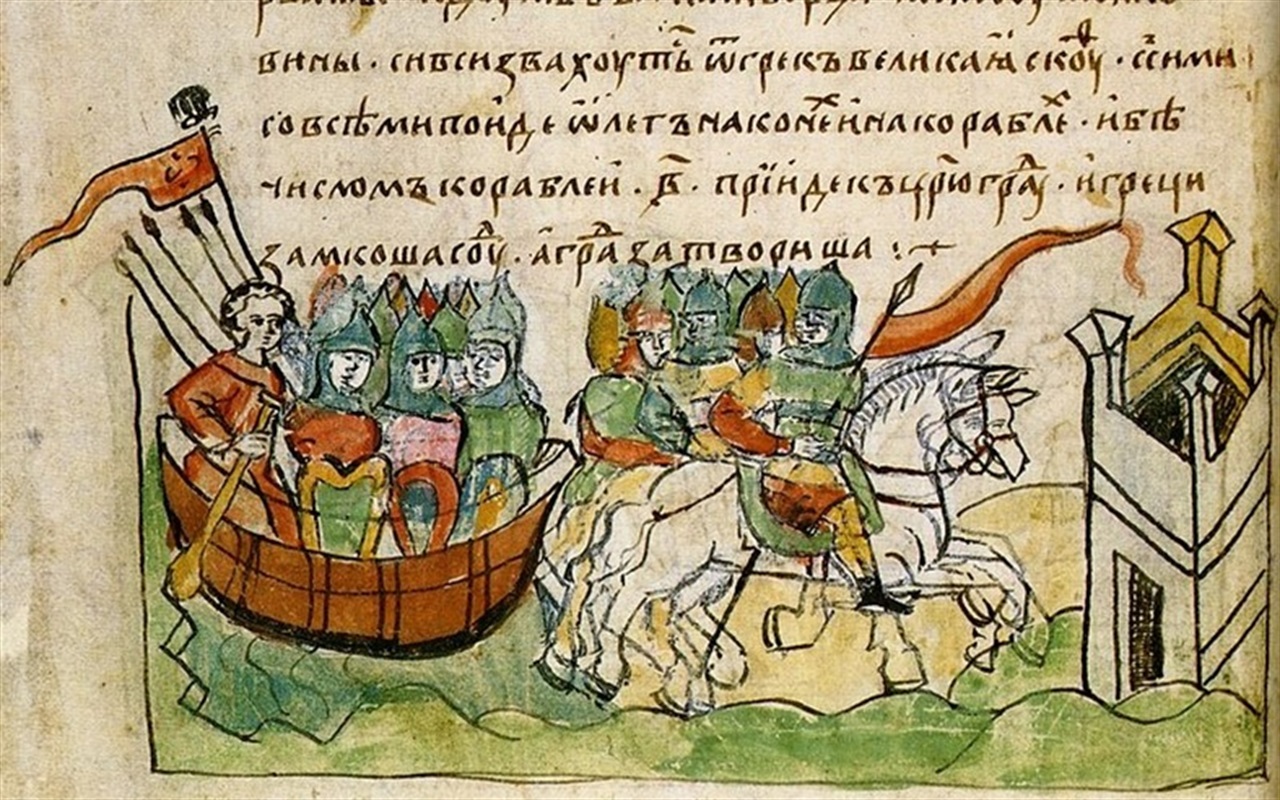 вины · си вси звахоуть ѿ грекъ великаꙗ скоуⷴ · с сими
со всѣми поиде ѡлегъ на конеⷯ и на кораблеⷯ · и бѣ
числомъ кораблеи · в҃ · прїиде къ цр҃югра · и греци
замкоша соуⷣ · а граⷣ затвориша :·+